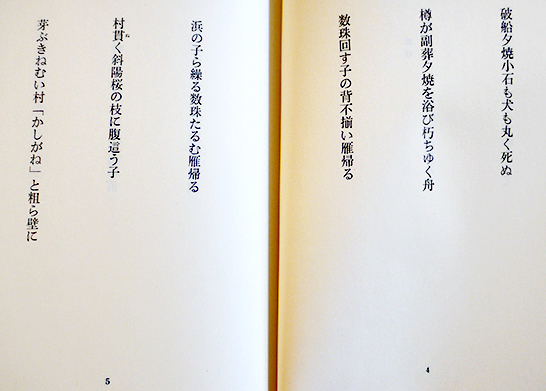 破船夕焼小石も犬も丸く死ぬ
樽が副葬夕焼を浴び朽ちゆく舟
数珠回す子の背不揃い雁帰る
4
浜の子ら繰る数珠たるむ雁帰る
村貫く斜陽桜の枝に腹這う子
芽ぶきねむい村「かしがね」と粗ら壁に
5